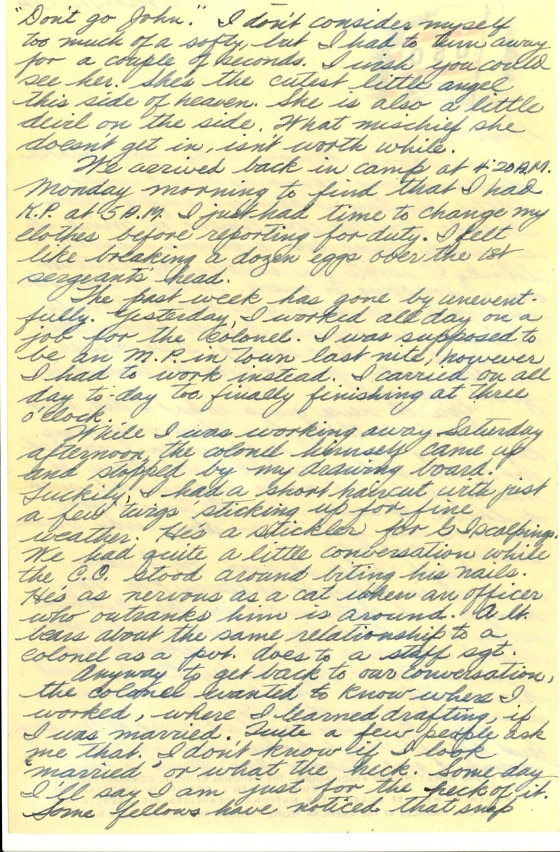 "Don't go John." I don't consider myself
too much of a softy, but I had to turn away
for a couple of seconds. I wish you could
see her. She's the cutest little angel
this side of heaven. She is also a little
devil on the side. What mischief she
doesn't get in, isn't worth while.
We arrived back in camp at 4:20 A.M.
Monday morning to find that I had
K.P. at 5 A.M. I just had time to change my
clothes before reporting for duty. I felt
like breaking a dozen eggs over the 1st
sergeants' head.
The past week has gone by unevent-
fully. Yesterday, I worked all day on a
job for the Colonel. I was supposed to
be an M.P. in town last nite, however
I had to work instead. I carried on all
day to-day too finally finishing at three
o'clock.
While I was working away Saturday
afternoon, the colonel himself came up
and stopped by my drawing board.
Luckily, I had a short haircut with just
a few "twigs" sticking up for fine
weather. He's a stickler for G.I. scalpings.
We had quite a little conversation while
the C.O. stood around biting his nails.
He's as nervous as a cat when an officer
who outranks him is around. A Lt.
bears about the same relationship to a
colonel as a pvt. does to a staff sgt.
Anyway to get back to our conversation,
the colonel wanted to know where I
worked, where I learned drafting, if
I was married. Quite a few people ask
me that. I don't know if I look
"married" or what the heck. Some day
I'll say I am just for the heck of it.
Some fellows have noticed that snap